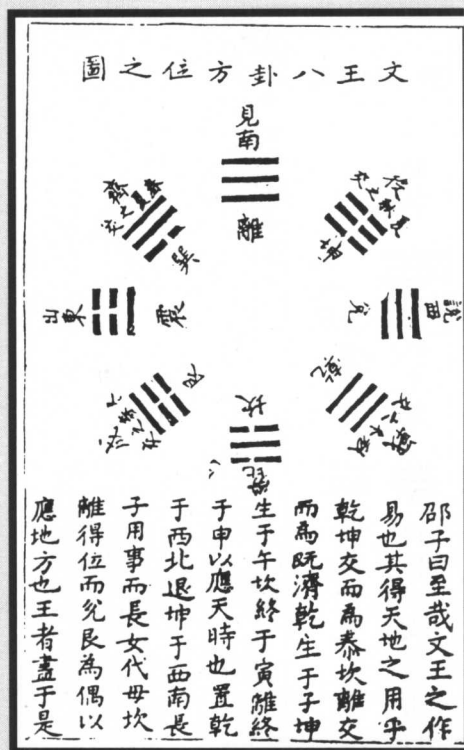 文王八卦方位之圖
見南
離
坤
西
兌
乾
坎
艮
震
東
巽
邵子曰至哉文王之作
易也其得天地之用乎
乾坤交而為泰坎離交
而為既濟乾生于子坤
生于午坎終于寅離終
于申以應天時也置乾
于西北退坤于西南長
子用事而長女代母坎
離得位而兌艮為偶以
應地方也王者盡于是